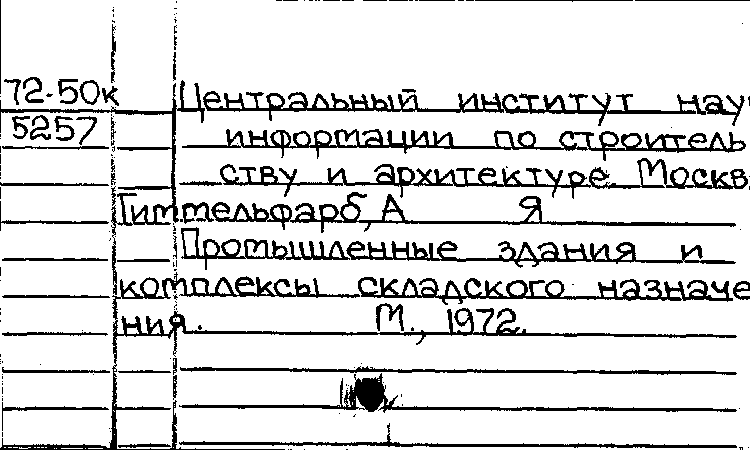 72-50к Центральный институт нау
5257 информации по строитель
ству и архитектуре. Москв
Гиттельфарб, А Я
Промышленные здания и
комплексы складского назначе
ния. М., 1972.